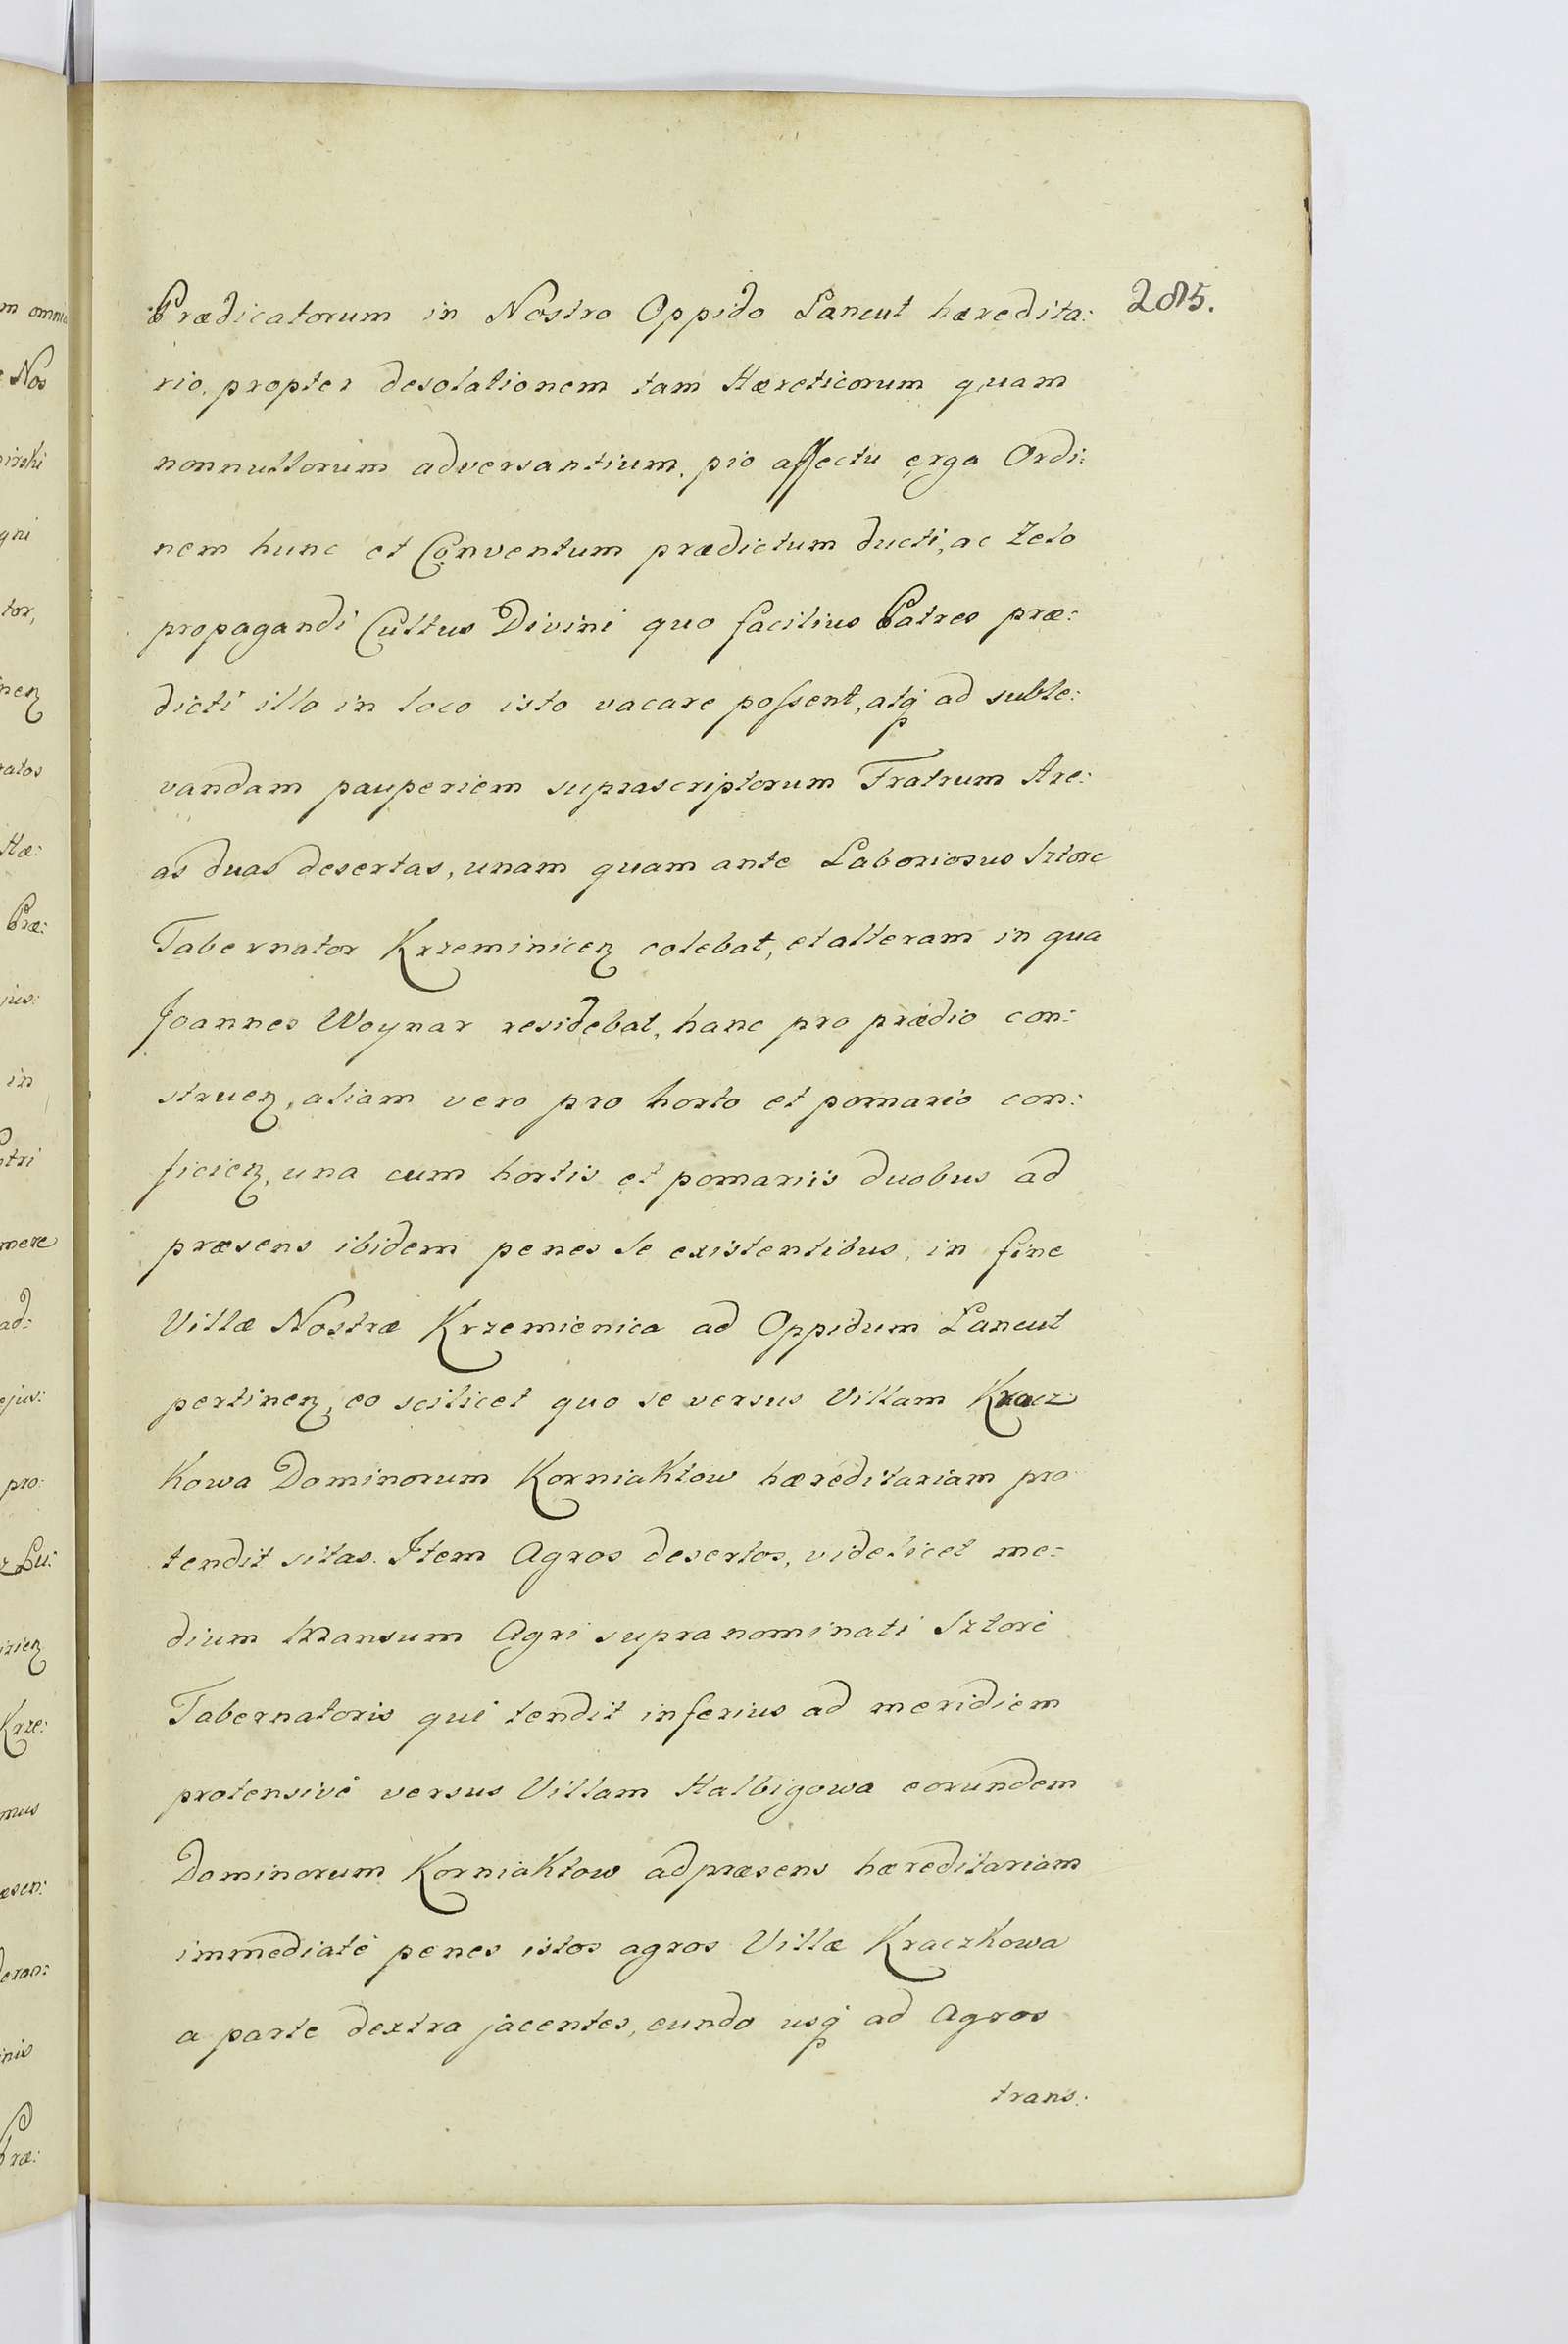 285.
Prædicatorum in Nostro Oppido Lancut hæredita:
rio, propter desolationem tam Hæreticorum quam
nonnullorum adversantium, pio affectu erga Ordi:
nem hunc et Conventum prædictum ducti, ac Zelo
propagandi Cultus Divini quo facilius Patres præ:
dicti illo in loco isto vacare poſsent, atq́ ad suble:
vandam pauperiem suprascriptorum Fratrum Are:
as duas desertas, unam quam ante Laboriosus Sztorc
Tabernator Krzeminicen̄ colebat, et alteram in qua
Joannes Woynar residebat, hanc pro prædio con:
struen̄, aliam vero pro horto et pomario con:
ficien̄, una cum hortis et pomariis duobus ad
præsens ibidem penes se existentibus, in fine
Villæ Nostræ Krzemienica ad Oppidum Lancut
pertinen̄, eo scilicet quo se versus Villam Kracz
kowa Dominorum Korniaktow hæreditariam pro
tendit sitas. Item Agros desertos, videlicet me:
dium Mansum Agri supranominati Sztorc
Tabernatoris qui tendit inferius ad meridiem
protensivè versus Villam Halbigowa eorundem
Dominorum Korniaktow ad præsens hæreditariam
immediatè penes istos agros Villæ Kraczkowa
a parte dextra jacentes, eundo usq́ ad Agros
trans:
m omnia
Nos
gni
tor,
nen̄
ratos
Hæ:
Præ:
jus:
in
mere
ad:
ejus:
pro
Lu:
Krze:
mus
eran:
nis
Præ: